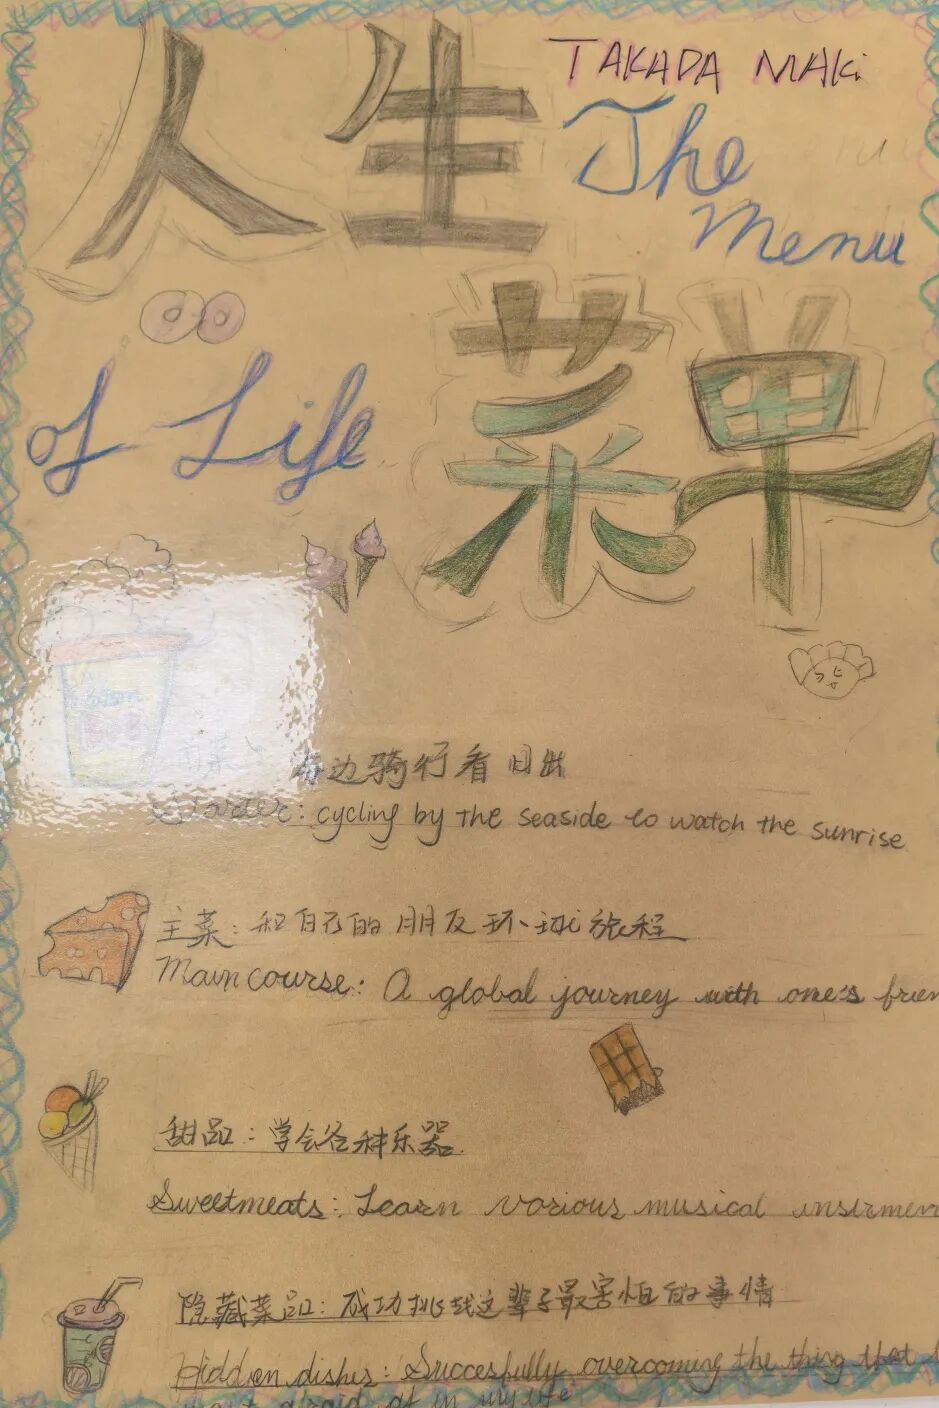 TAKADA MAKi
人生
The
Menu
of Life
菜单
边骑行看日出
Starter: cycling by the seaside to watch the sunrise
主菜: 和自己的朋友环球旅程
Main course: A global journey with one's frien
甜品: 学会各种乐器
Sweetmeats: Learn various musical instrmen
隐藏菜品: 成功挑战这辈子最害怕的事情
Hidden dishes: Succesfully overcoming the thing that
most afraid of in my life